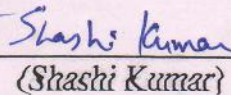 Shashi Kumar
(Shashi Kumar)